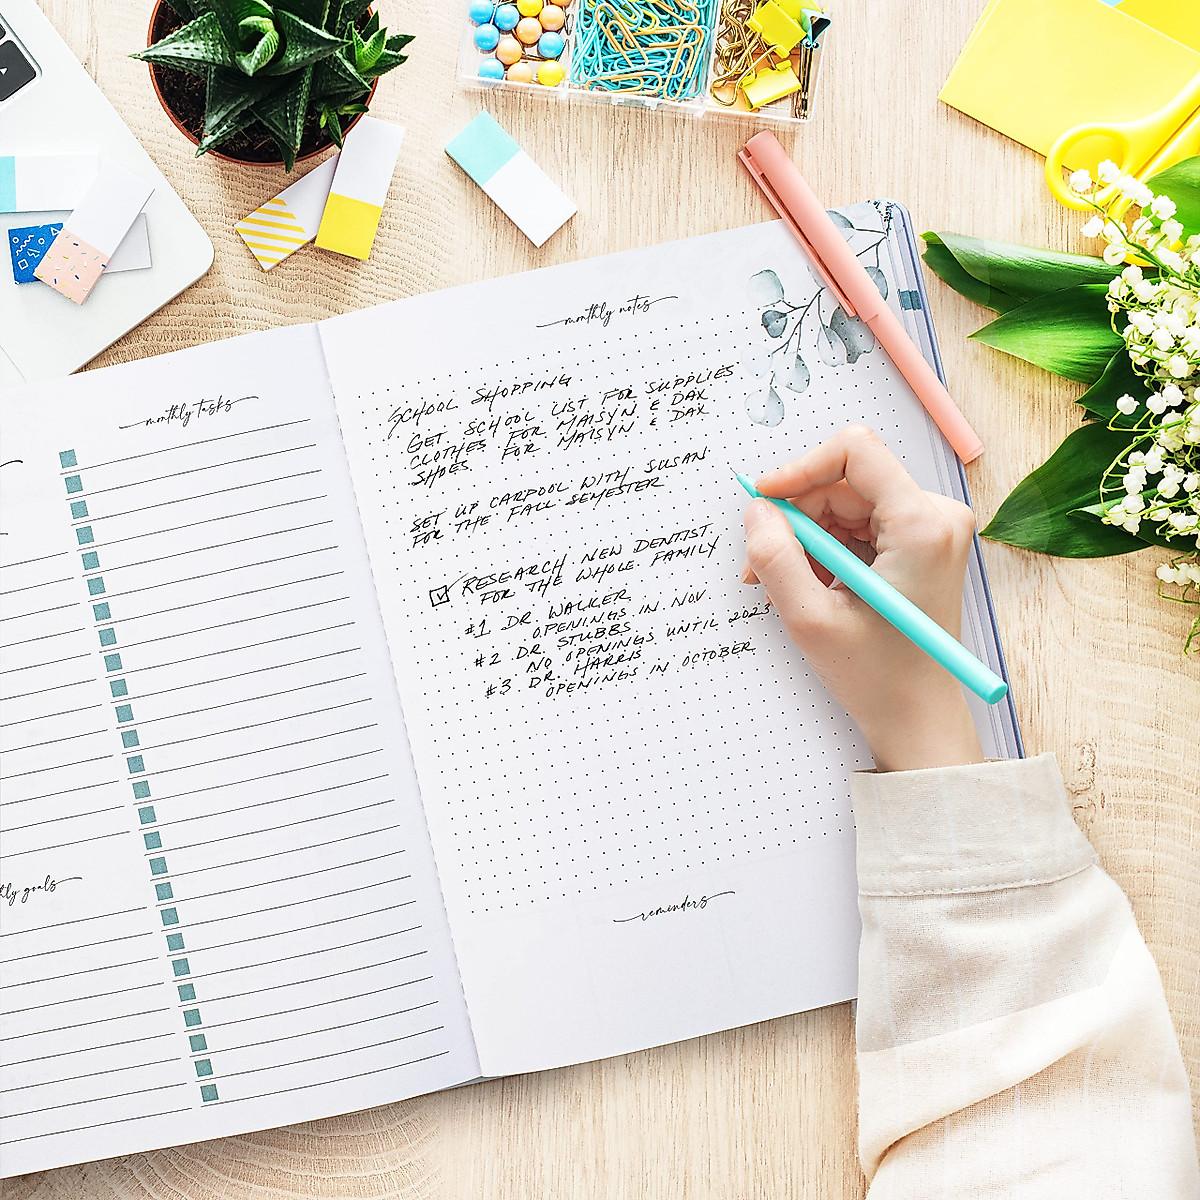 monthly tasks
goals
monthly notes
SCHOOL SHOPPING
GET SCHOOL LIST FOR SUPPLIES
CLOTHES FOR MAISYN & DAX
SHOES FOR MAISYN & DAX
SET UP CARPOOL WITH SUSAN
FOR THE FALL SEMESTER
RESEARCH NEW DENTIST
FOR THE WHOLE FAMILY
#1 DR. WALKER
OPENINGS IN NOV
#2 DR. STUBBS
NO OPENINGS UNTIL 2023
#3 DR. HARRIS
OPENINGS IN OCTOBER
reminders